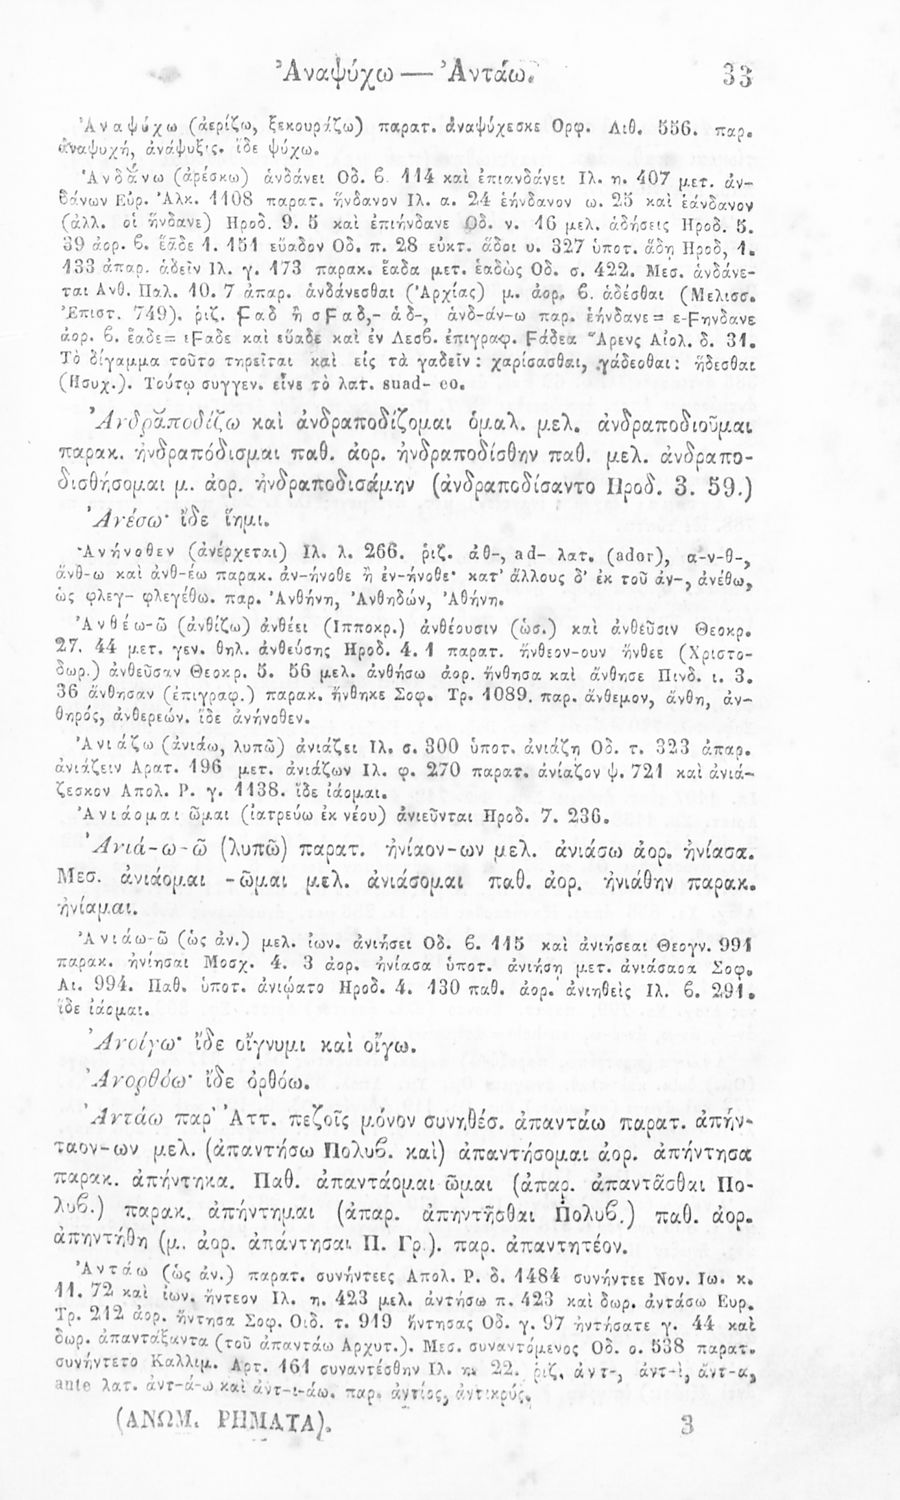 Ἀναψύχω — Ἀντάω. 33
Ἀναψύχω (ἀερίζω, ξεκουράζω) παρατ. ἀναψύχεσκε Ορφ. Λιθ. 556. παρ.
ἀναψυχή, ἀνάψυξις. ἴδε ψύχω.
Ἁνδάνω (ἀρέσκω) ἁνδάνει Οδ. β. 114 καὶ ἐπιανδάνει Ιλ. η. 407 μετ. ἁν-
δάνων Εὐρ. Ἀλκ. 1108 παρατ. ἥνδανον Ιλ. α. 24 ἑήνδανον ω. 25 καὶ ἑάνδανον
(ἀλλ. οἱ ἥνδανε) Ηροδ. 9. 5 καὶ ἐπιήνδανε Οδ. ν. 16 μελ. ἁδήσεις Ηροδ. 5.
39 ἀορ. β. ἕαδε 1. 151 εὔαδον Οδ. π. 28 εὐκτ. ἅδοι υ. 327 ὑποτ. ἅδῃ Ηροδ, 1.
133 ἀπαρ. ἁδεῖν Ιλ. γ. 173 παρακ. ἕαδα μετ. ἑαδὼς Οδ. σ. 422. Μεσ. ἁνδάνε-
ται Ανθ. Παλ. 10. 7 ἀπαρ. ἁνδάνεσθαι (Ἀρχίας) μ. ἀορ. β. ἁδέσθαι (Μελισσ.
Ἐπιστ. 749). ῥιζ. ϝαδ ἢ σϝαδ,- ἁδ-, ἁνδ-άν-ω παρ. ἑήνδανε = ε-ϝηνδανε
ἀορ. β. ἕαδε = ἐϝαδε καὶ εὔαδε καὶ ἐν Λεσβ. ἐπιγραφ. ϝάδεα Ἄρενς Αἰολ. δ. 31.
Τὸ δίγαμμα τοῦτο τηρεῖται καὶ εἰς τὰ γαδεῖν : χαρίσασθαι, γάδεσθαι : ἥδεσθαι
(Ησυχ.). Τούτῳ συγγεν. εἶνε τὸ λατ. suad- eo.
Ἀνδραποδίζω καὶ ἀνδραποδίζομαι ὁμαλ. μελ. ἀνδραποδιοῦμαι
παρακ. ἠνδραπόδισμαι παθ. ἀορ. ἠνδραποδίσθην παθ. μελ. ἀνδραπο-
δισθήσομαι μ. ἀορ. ἠνδραποδισάμην (ἀνδραποδίσαντο Ηροδ. 3. 59.)
Ἀνέσω· ἴδε ἵημι.
Ἀνήνοθεν (ἀνέρχεται) Ιλ. λ. 266. ῥιζ. ἀθ-, ad- λατ. (ador), α-ν-θ-,
ἄνθ-ω καὶ ἀνθ-έω παρακ. ἀν-ήνοθε ἢ ἐν-ήνοθε· κατ' ἄλλους δ' ἐκ τοῦ ἀν-, ἀνέθω,
ὡς φλεγ- φλεγέθω. παρ. Ἀνθήνη, Ἀνθηδών, Ἀθήνη.
Ἀνθέω-ῶ (ἀνθίζω) ἀνθέει (Ιπποκρ.) ἀνθέουσιν (ὡσ.) καὶ ἀνθεῦσιν Θεοκρ.
27. 44 μετ. γεν. θηλ. ἀνθεύσης Ηροδ. 4. 1 παρατ. ἤνθεον-ουν ἤνθεε (Χριστο-
δωρ.) ἀνθεῦσαν Θεοκρ. 5. 56 μελ. ἀνθήσω ἀορ. ἤνθησα καὶ ἄνθησε Πινδ. ι. 3.
36 ἄνθησαν (ἐπιγραφ.) παρακ. ἤνθηκε Σοφ. Τρ. 1089. παρ. ἄνθεμον, ἄνθη, ἀν-
θηρός, ἀνθερεών. ἴδε ἀνήνοθεν.
Ἀνιάζω (ἀνιάω, λυπῶ) ἀνιάζει Ιλ. σ. 300 ὑποτ. ἀνιάζῃ Οδ. τ. 323 ἀπαρ.
ἀνιάζειν Αρατ. 196 μετ. ἀνιάζων Ιλ. φ. 270 παρατ. ἀνίαζον ψ. 721 καὶ ἀνιά-
ζεσκον Απολ. Ρ. γ. 1138. ἴδε ἰάομαι.
Ἀνιάομαι ῶμαι (ἰατρεύω ἐκ νέου) ἀνιεῦνται Ηροδ. 7. 236.
Ἀνιά-ω-ῶ (λυπῶ) παρατ. ἠνίαον-ων μελ. ἀνιάσω ἀορ. ἠνίασα.
Μεσ. ἀνιάομαι -ῶμαι μελ. ἀνιάσομαι παθ. ἀορ. ἠνιάθην παρακ.
ἠνίαμαι.
Ἀνιάω-ῶ (ὡς ἀν.) μελ. ἰων. ἀνιήσει Οδ. β. 115 καὶ ἀνιήσεαι Θεογν. 991
παρακ. ἠνίησαι Μοσχ. 4. 3 ἀορ. ἠνίασα ὑποτ. ἀνιήσῃ μετ. ἀνιάσασα Σοφ.
Αι. 994. Παθ. ὑποτ. ἀνιῴατο Ηροδ. 4. 130 παθ. ἀορ. ἀνιηθεὶς Ιλ. β. 291.
ἴδε ἰάομαι.
Ἀνοίγω· ἴδε οἴγνυμι καὶ οἴγω.
Ἀνορθόω· ἴδε ὀρθόω.
Ἀντάω παρ' Ἀττ. πεζοῖς μόνον συνηθέσ. ἀπαντάω παρατ. ἀπήν-
ταον-ων μελ. (ἀπαντήσω Πολυβ. καὶ) ἀπαντήσομαι ἀορ. ἀπήντησα
παρακ. ἀπήντηκα. Παθ. ἀπαντάομαι ῶμαι (ἀπαρ. ἀπαντᾶσθαι Πο-
λυβ.) παρακ. ἀπήντημαι (ἀπαρ. ἀπηντῆσθαι Πολυβ.) παθ. ἀορ.
ἀπηντήθη (μ. ἀορ. ἀπάντησαι Π. Γρ.). παρ. ἀπαντητέον.
Ἀντάω (ὡς ἀν.) παρατ. συνήντεες Απολ. Ρ. δ. 1484 συνήντεε Νον. Ιω. κ.
11. 72 καὶ ἰων. ἤντεον Ιλ. η. 423 μελ. ἀντήσω π. 423 καὶ δωρ. ἀντάσω Ευρ.
Τρ. 212 ἀορ. ἤντησα Σοφ. Οιδ. τ. 919 ἤντησας Οδ. γ. 97 ἠντήσατε γ. 44 καὶ
δωρ. ἀπαντάξαντα (τοῦ ἀπαντάω Αρχυτ.). Μεσ. συναντόμενος Οδ. ο. 538 παρατ.
συνήντετο Καλλιμ. Αρτ. 161 συναντέσθην Ιλ. η. 22. ῥιζ. ἀντ-, ἀντ-ὶ, ἄντ-α,
ante λατ. ἀντ-ά-ω καὶ ἀντ-ι-άω. παρ. ἀντίος, ἀντικρύς.
(ΑΝΩΜ. ΡΗΜΑΤΑ). 3